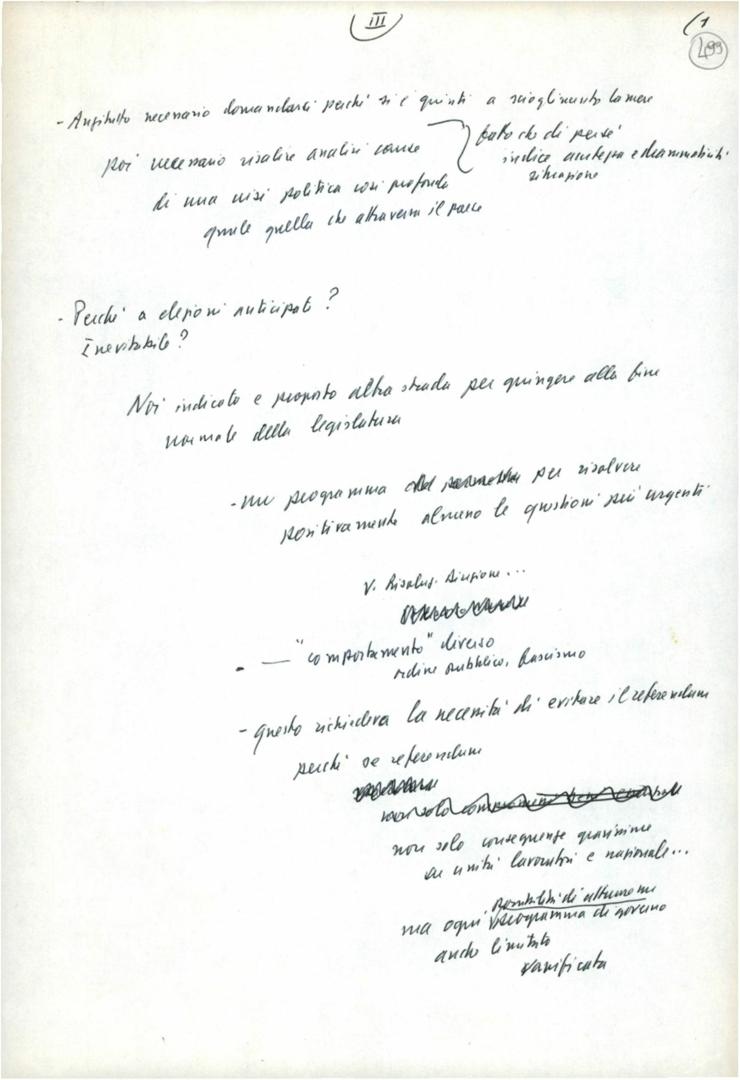 III
(1
499
- Anzitutto necessario domandarsi perché si è giunti a scioglimento Camere
poi necessario risalire analisi cause
di una crisi politica così profonda
quale quella che attraversa il paese
fatto che di per sé
indice acutezza e drammaticità
situazione
- Perché a elezioni anticipate?
Inevitabile?
Noi indicato e proposto altra strada per giungere alla fine
normale della legislatura
- un programma per risolvere
positivamente almeno le questioni più urgenti
V. Risoluz. Direzione...
- — "comportamento" diverso
ordine pubblico, fascismo
- questo richiedeva la necessità di evitare il referendum
perché se referendum
non solo
non solo conseguenze gravissime
su unità lavoratori e nazionale...
possibilità di
ma ogni programma di governo
anche limitato
vanificata